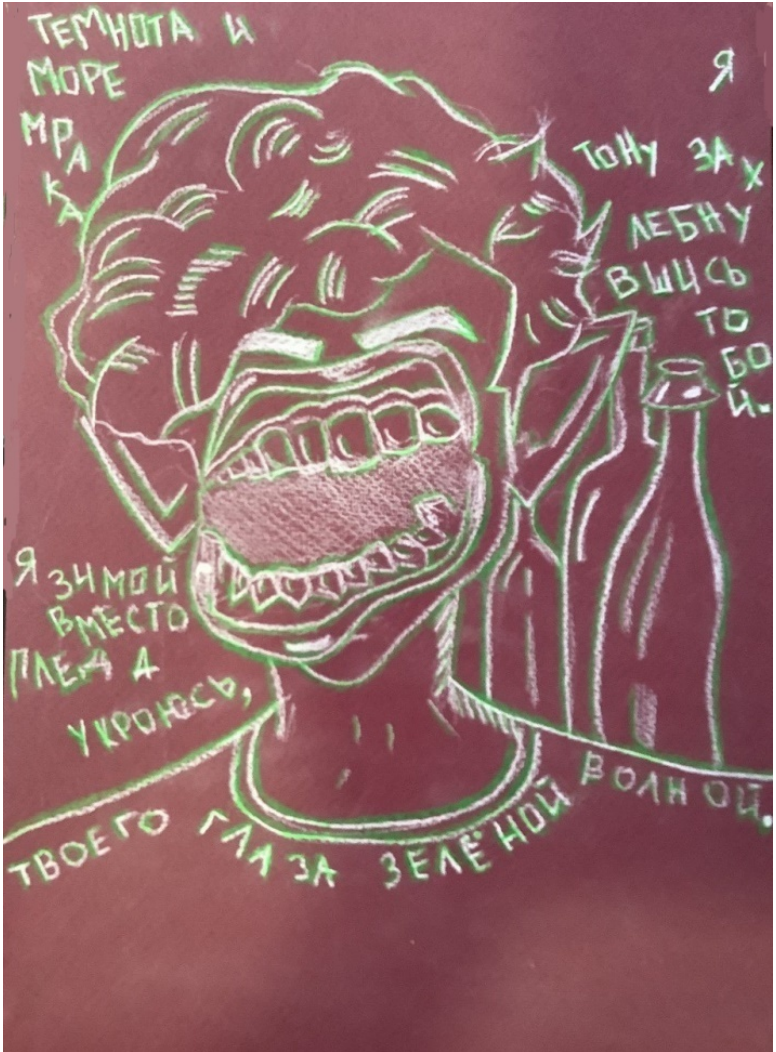 ТЕМНОТА И
МОРЕ
МРАКА
Я
ТОНУ ЗАХ
ЛЕБНУ
ВШИСЬ
ТО
БО
Й.
Я ЗИМОЙ
ВМЕСТО
ПЛЕДА
УКРОЮСЬ,
ТВОЕГО ГЛАЗА ЗЕЛЁНОЙ ВОЛНОЙ.